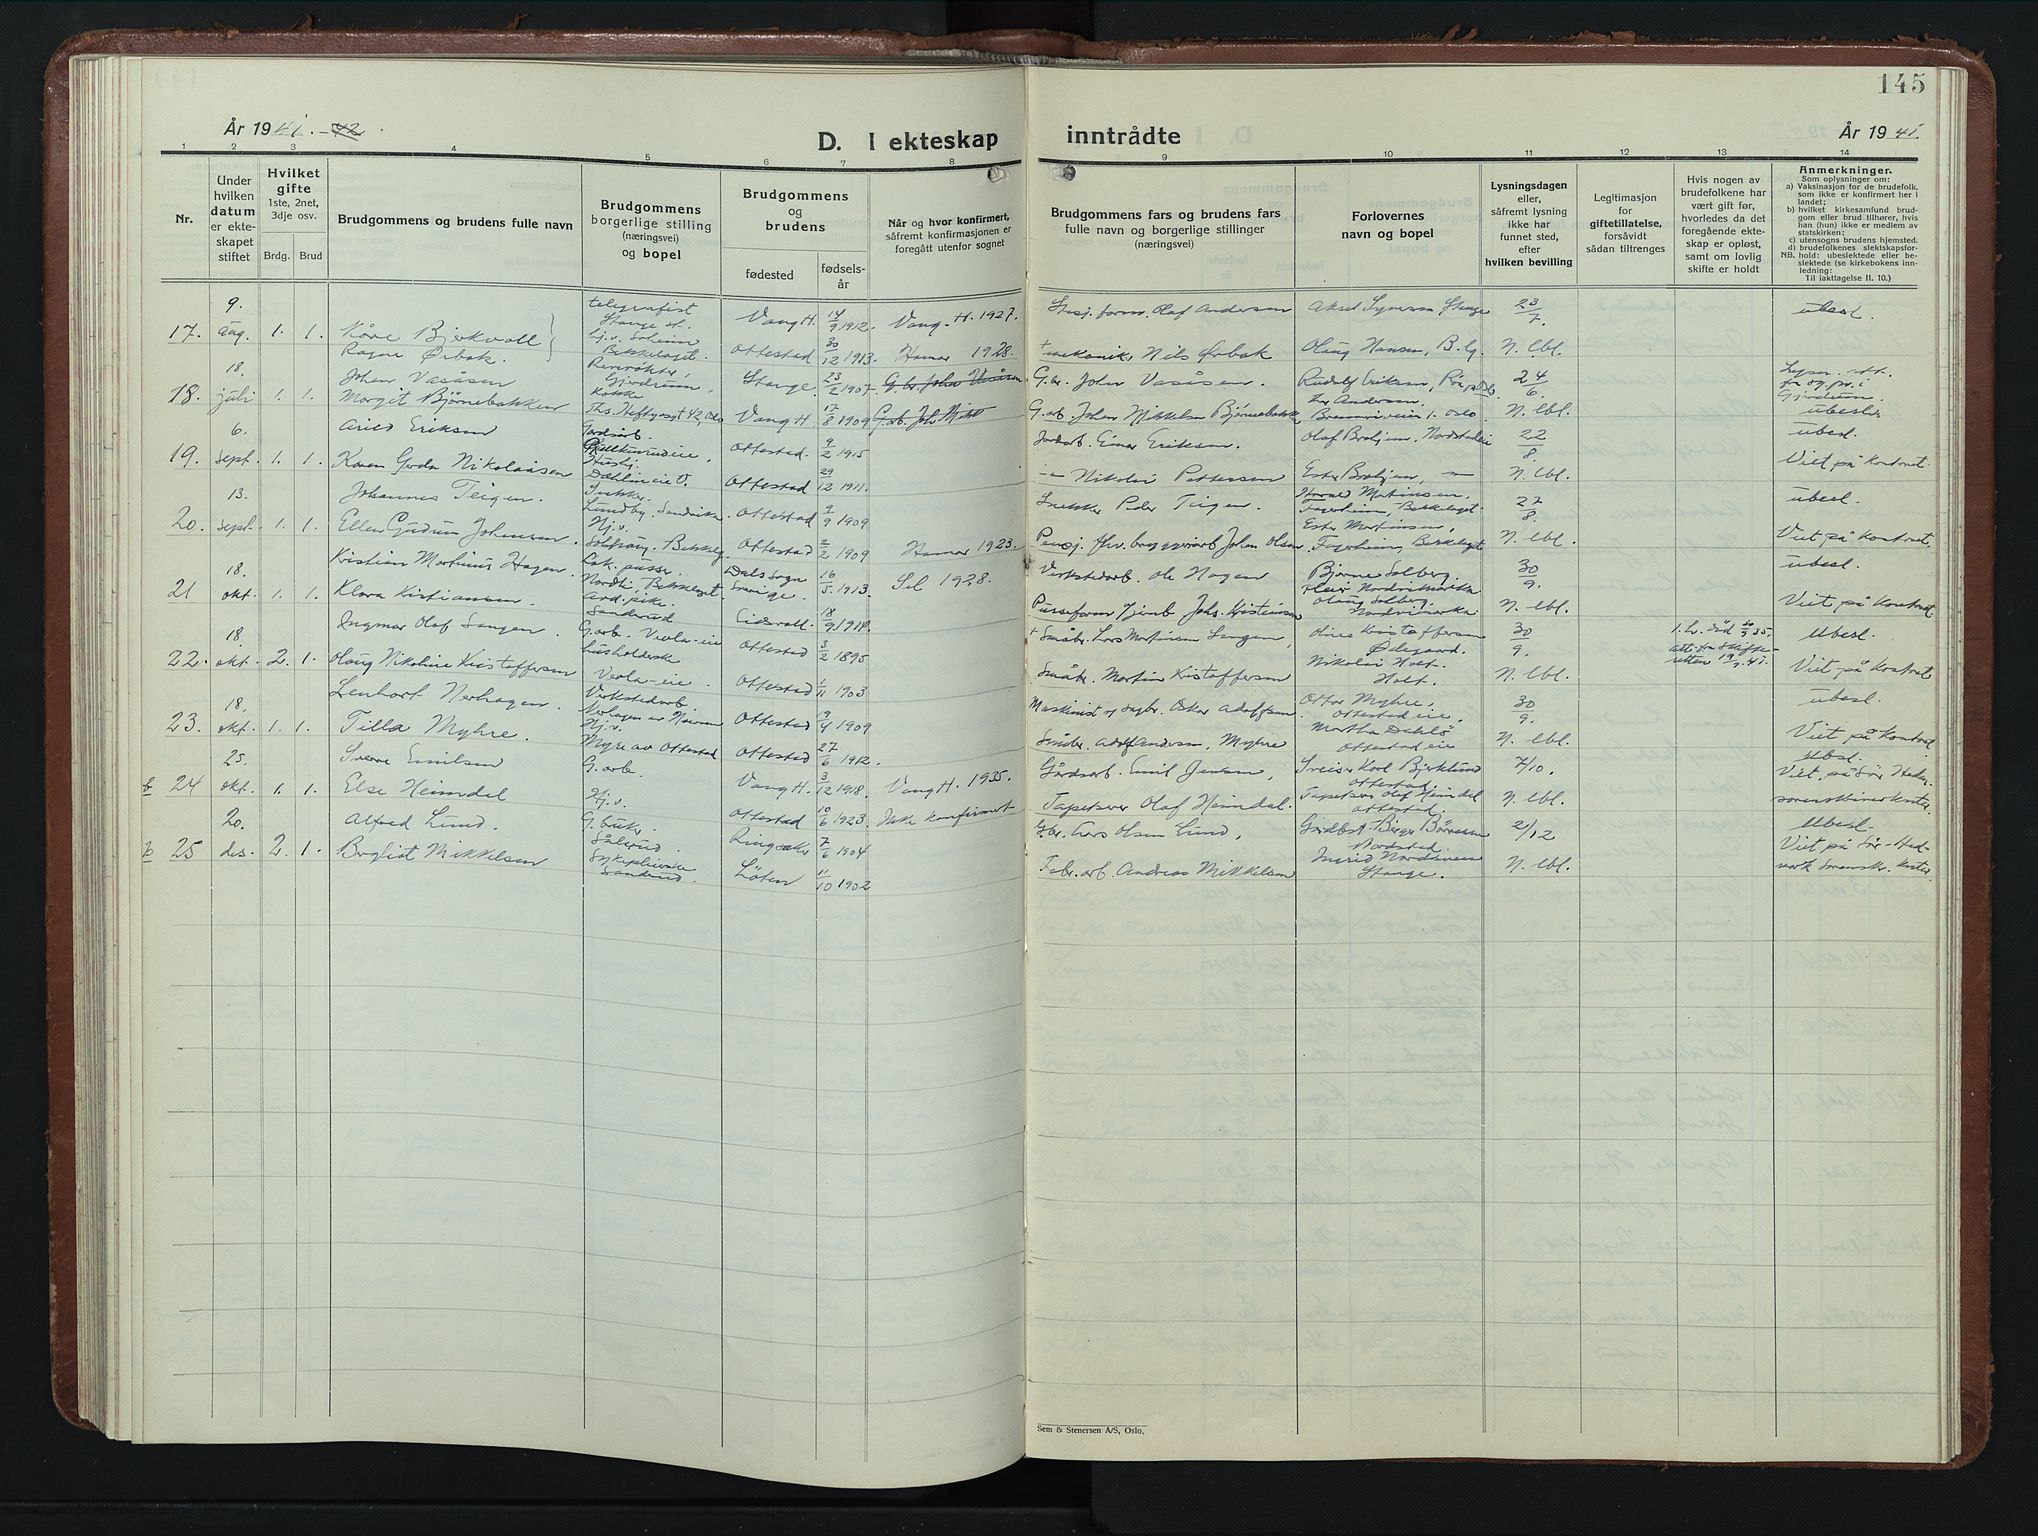 145
År 1941. -42
D. I ekteskap inntrådte
År 1941.
1 2 3 4 5 6 7 8 9 10 11 12 13 14
Nr.
Under hvilken datum er ekteskapet stiftet
Hvilket gifte 1ste, 2net, 3dje osv.
Brdg. Brud
Brudgommens og brudens fulle navn
Brudgommens borgerlige stilling (næringsvei) og bopel
Brudgommens og brudens
fødested
fødselsår
Når og hvor konfirmert, såfremt konfirmasjonen er foregått utenfor sognet
Brudgommens fars og brudens fars fulle navn og borgerlige stillinger (næringsvei)
Forlovernes navn og bopel
Lysningsdagen eller, såfremt lysning ikke har funnet sted, efter hvilken bevilling
Legitimasjon for giftetillatelse, forsåvidt sådan tiltrenges
Hvis nogen av brudefolkene har vært gift før, hvorledes da det foregående ekteskap er opløst, samt om lovlig skifte er holdt
Anmerkninger.
Som oplysninger om:
a) Vaksinasjon for de brudefolk, som ikke er konfirmert her i landet;
b) hvilket kirkesamfund brudgom eller brud tilhører, hvis han (hun) ikke er medlem av statskirken;
c) utensogns brudens hjemsted.
d) brudefolkenes slektskapsforhold: ubeslektede eller beslektede (se kirkebokens innledning:
NB. Til iakttagelse II. 10.)
17. 9. aug. 1. 1. Kåre Bjerkvoll telegrafist Stange st. Vang H. 14/9 1912. Vang H. 1927. Olaf Andersen Aksel Syversen Stange 23/7. ubesl.
Ragna Ørbak. Hj.v. Solheim Bekkelaget. Ottestad 30/12 1913. Hamar 1928. mekanik. Nils Ørbak Olaug Hansen, B.lg. N. lbl.
18. 18. juli 1. 1. Johan Vasåsen Gjerdrum, Stange 23/2 1907. G.br. John Vasåsen G.br. John Vasåsen. Rudolf Eriksen, 24/6.
Margit Bjørnebakken Kokke Ths. Heftyesgt 42, Oslo Vang H. 17/8 1909 G.arb. Johan Mikkelsen Bjørnebakk Oslo N. lbl. ubesl.
19. 6. sept. 1. 1. Arild Eriksen Gårdsarb. Ottestad. 9/2 1915 Jordarb. Einar Eriksen. Olaf Brohjem, 22/8. ubesl.
Karen Gerda Nikolaisen Hushj. Ottestad 29/12 1911. Nikolai Pettersen Ester Brohjem, N. lbl. Viet på kontoret.
20. 13. sept. 1. 1. Johannes Teigen. Snekker Lundby, Sandvika. Ottestad 9/9 1909 Snekker Peder Teigen. Martinsen, Fagerheim, Bekkelaget 27/8. ubesl.
Ellen Gudrun Johansen. Hj.v. Solhaug, Bekkelg. Ottestad 2/2 1909 Hamar 1923. Johan Olsen Ester Martinsen, Fagerheim, Bekkelaget N. lbl. Viet på kontoret.
21 18. okt. 1. 1. Kristian Martinus Hagen. Lok. pusser. Nordli, Bekkelaget. Dals sogn Sverige. 16/5 1913. Sel 1928. Verkstedarb. Ole Hagen Bjørne Solberg 30/9. ubesl.
Klara Kristiansen. Arb. pike. Sanderud Eidsvoll. 18/9 1914. Pusseform. Johs. Kristiansen Olaug Solberg, N. lbl. Viet på kontoret
22. 18 okt. 2. 1. Ingmar Olaf Sangen. G.arb. Vevla-eie Ottestad 3/2 1895 Småbr. Lars Martinsen Sangen Olines Kristoffersen Ødegaard. 30/9. 1. h. død 35. att. fra skifteretten 19/9. 41. ubesl.
Olaug Nikoline Kristoffersen husholderske Vevla-eie. Ottestad 1/11 1903 Småbr. Martin Kristoffersen Nikolai Holt. Holt. N. lbl. Viet på kontoret
23. 18. okt. 1. 1. Lenhart Nerhagen. Verkstedarb. Ottestad 9/4 1909 Maskinist og småbr. Oskar Adolfsen Ottar Myhre, Ottestad eie, 30/9. ubesl.
Tilla Myhre. Hj.v. Myre av Ottestad Ottestad 27/6 1912. Småbr. Adolf Andersen, Myhre Martha Dahlø Ottestad eie N. lbl. Viet på kontoret
b 24 25. okt. 1. 1. Sverre Emilsen G.arb. Vang H. 3/12 1918. Vang H. 1935. Gårdsarb. Emil Jensen, Sveiser Karl Bjerklund Ottestad. 7/10. Ubesl.
Else Heimdal Hj.v. Ottestad 10/6 1923. Ikke konfirmert Tapetserer Olaf Heimdal. Tapetserer Olaf Heimdal Ottestad. N. lbl. Viet på Sør Hedm. sorenskriverkontor.
b 25 20. des. 2. 1. Alfred Lund. G.bruk. Sålerud. Ringsaker 7/6 1904 G.br. Lars Olsen Lund, Gårdbst. Birger Børresen 2/12 Ubesl.
Borghild Mikkelsen Sykepleierske Sanderud. Løten 11/10 1902 Fabr. arb. Andreas Mikkelsen Ingrid Nordsveen Stange. N. lbl. Viet på Sør-Hedmark Sorenskr. kontor
Sem & Stenersen A/S, Oslo.